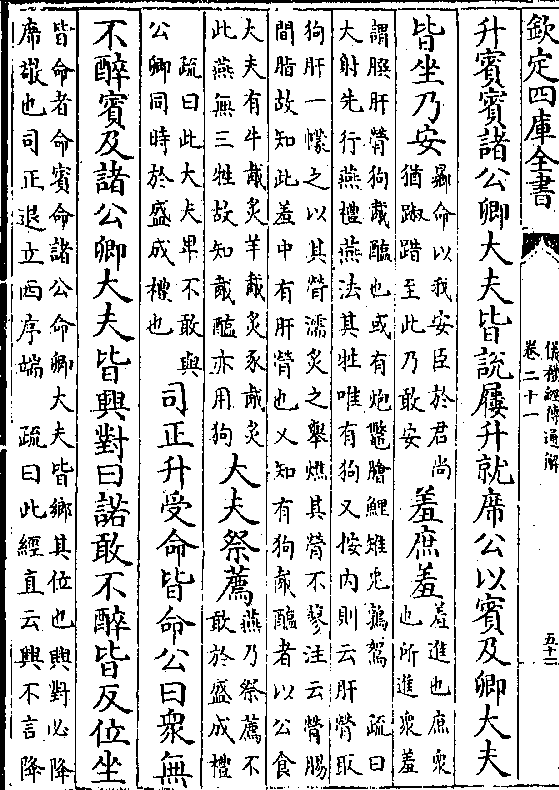 欽定四庫全書
儀禮經傳通解
卷二十一
五十二
升賓賓諸公卿大夫皆說屨升就席公以賓及卿大夫
皆坐乃安
曏命以我安臣於君尚
猶踧踖至此乃敢安
羞庶羞
羞進也庶衆
也所進衆羞
謂膮肝膋狗胾醢也或有炮鼈膾鯉雉兎鶉鴽
疏曰
大射先行燕禮燕法其牲唯有狗又按内則云肝膋取
狗肝一幪之以其膋濡炙之舉燋其膋不蓼注云膋腸
間脂故知此羞中有肝膋也又知有狗胾醢者以公食
大夫有牛胾炙羊胾炙豕胾炙
此燕無三牲故知胾醢亦用狗
大夫祭薦
燕乃祭薦不
敢於盛成禮
疏曰此大夫卑不敢與
公卿同時於盛成禮也
司正升受命皆命公曰衆無
不醉賓及諸公卿大夫皆興對曰諾敢不醉皆反位坐
皆命者命賓命諸公命卿大夫皆鄉其位也興對必降
席敬也司正退立西序端
疏曰此經直云興不言降